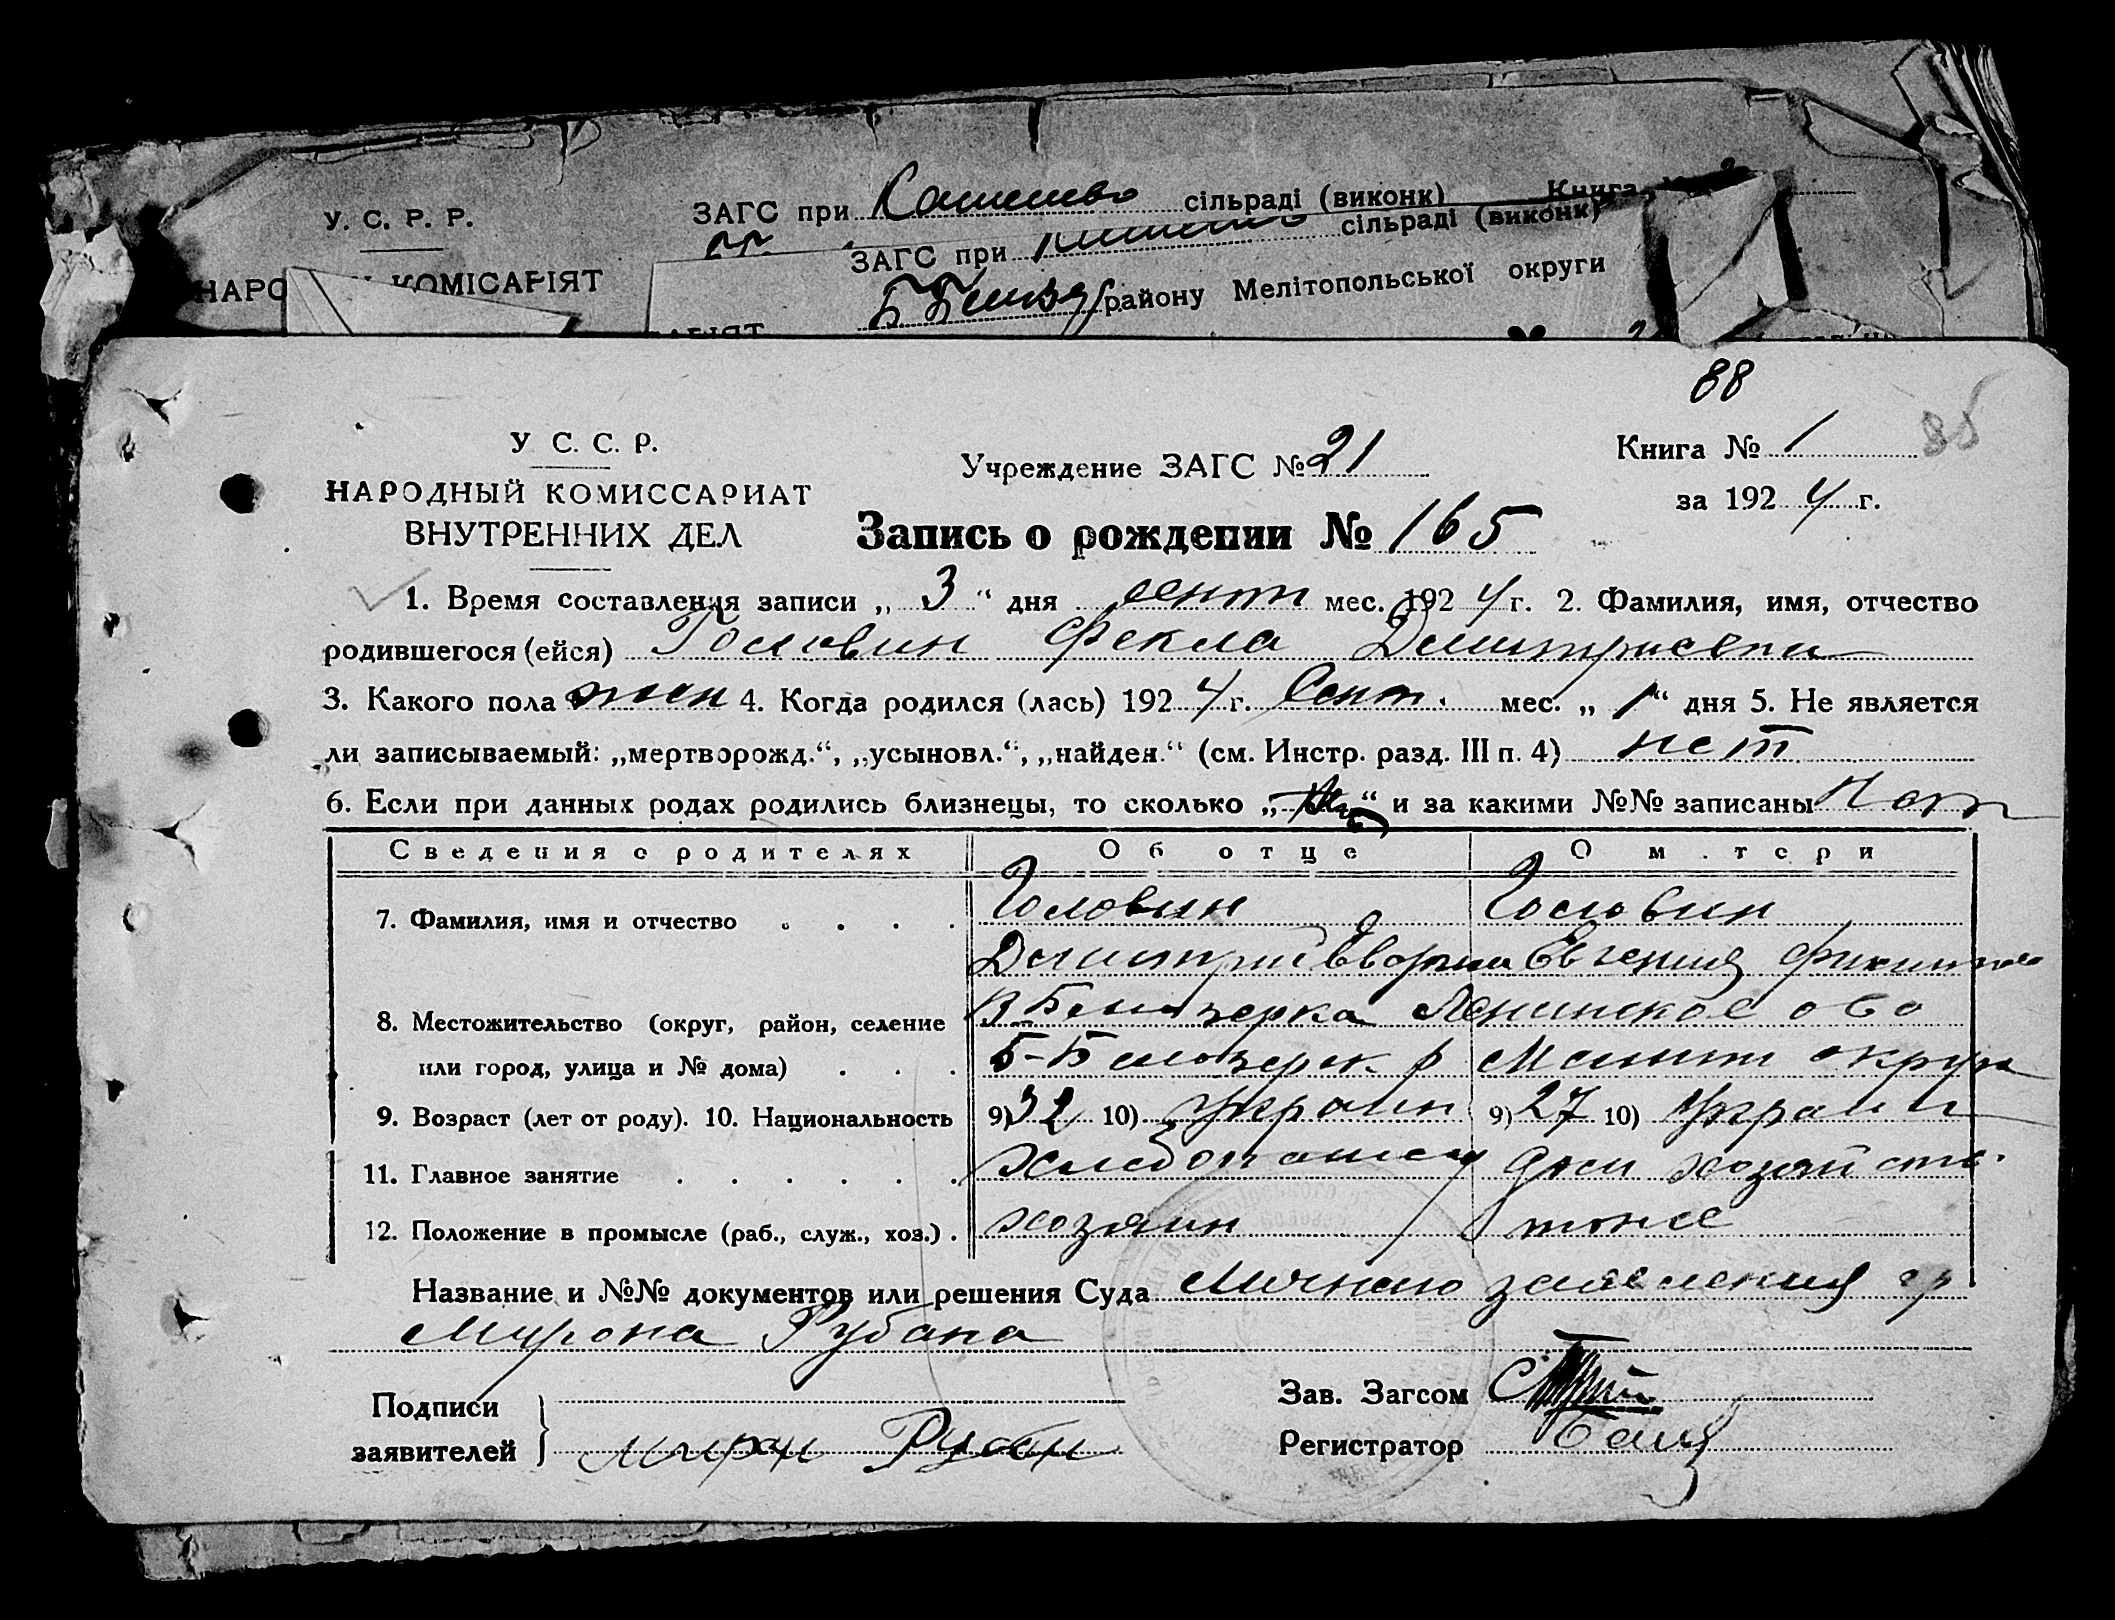 У. С. Р. Р.
ЗАГС при сільраді (виконк) Книга
ЗАГС при сільраді (виконк)
КОМІСАРІЯТ
району Мелітопольської округи
88
У С. С. Р.
Учреждение ЗАГС № 21
Книга № 1
НАРОДНЫЙ КОМИССАРИАТ
за 1924 г.
ВНУТРЕННИХ ДЕЛ
Запись о рождении № 165
1. Время составления записи „ 3 “ дня сент мес. 1924 г. 2. Фамилия, имя, отчество
родившегося (ейся) Головин Фекла
3. Какого пола жен 4. Когда родился (лась) 1924 г. Сент. мес. „ 1 “ дня 5. Не является
ли записываемый: „мертворожд.“, „усыновл.“, „найден.“ (см. Инстр. разд. III п. 4) нет
6. Если при данных родах родились близнецы, то сколько „ “ и за какими №№ записаны Нет
Сведения о родителях Об отце О м тери
7. Фамилия, имя и отчество . . . . Головин Головин
Дмитрий Евгения
8. Местожительство (округ, район, селение Белозерка Ленинское
или город, улица и № дома) . . . Б-Белозерк. р Мелит округа
9. Возраст (лет от роду). 10. Национальность 9) 32 10) Украин 9) 27 10) Украин
11. Главное занятие . . . . . . Хлебопашец дом хозяйств.
12. Положение в промысле (раб., служ., хоз.) . хозяин тоже
Название и №№ документов или решения Суда Личного заявления гр
Мирона Рубана
Подписи
заявителей } Мирон Рубан
Зав. Загсом
Регистратор